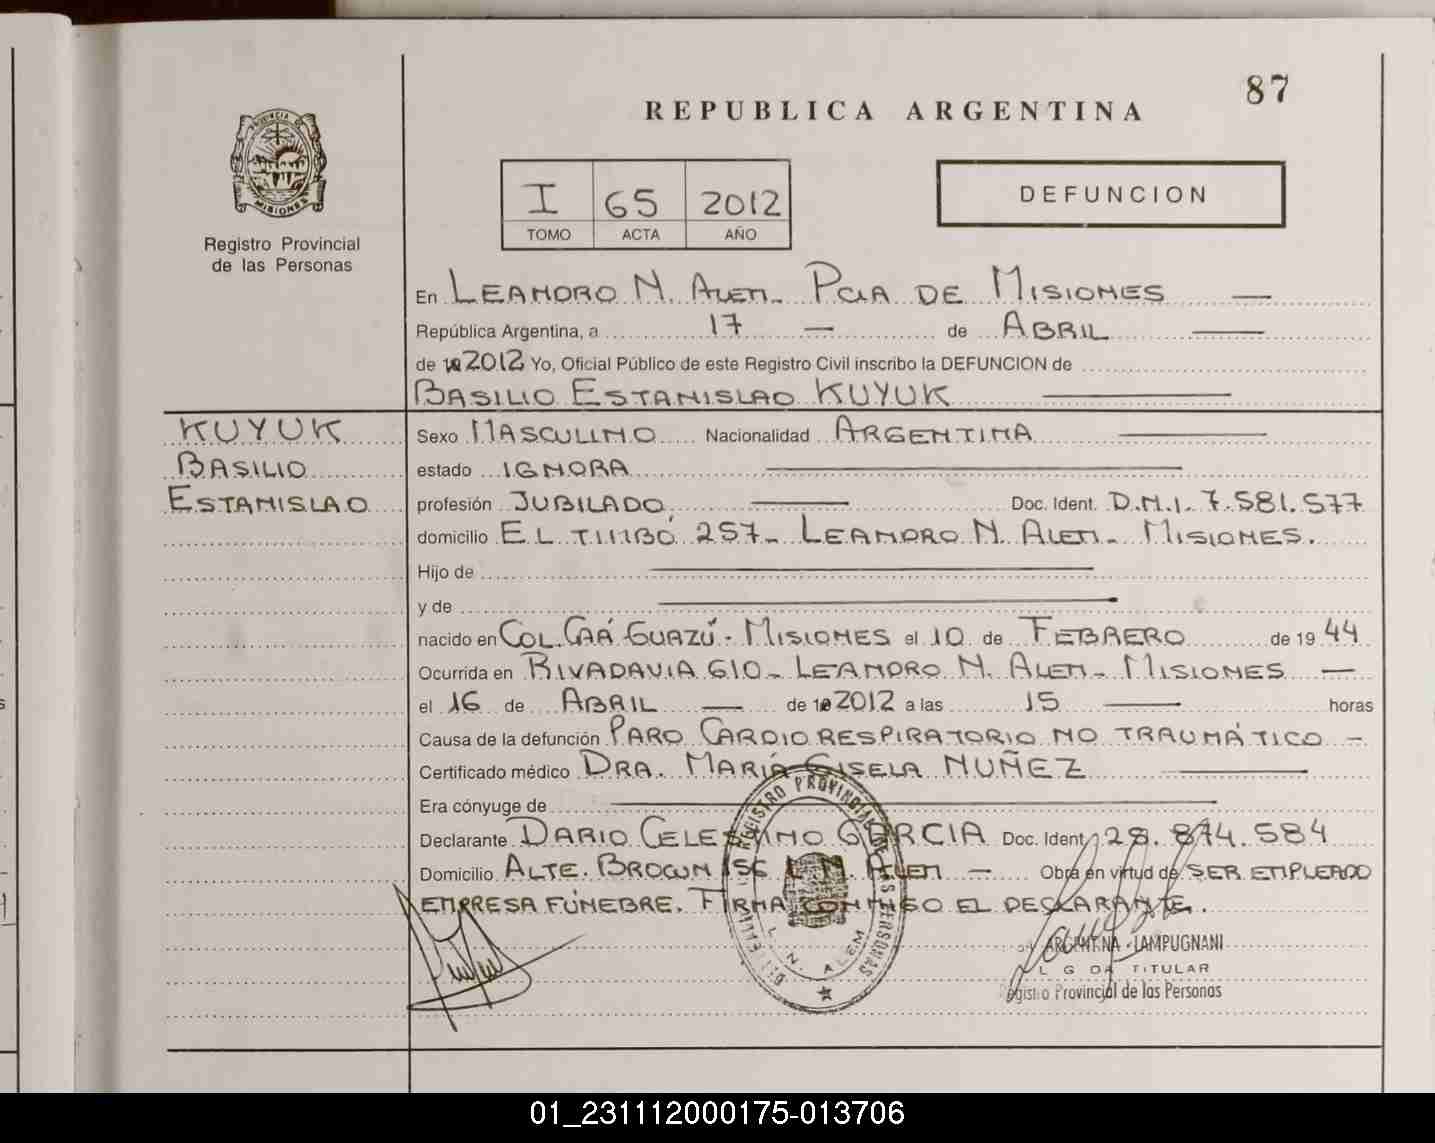 87
REPUBLICA ARGENTINA
PROVINCIA DE
MISIONES
Registro Provincial
de las Personas
I 65 2012
TOMO ACTA AÑO
DEFUNCION
En LEANDRO N. ALEM - PCIA DE MISIONES
República Argentina, a 17 de ABRIL
de 2012 Yo, Oficial Público de este Registro Civil inscribo la DEFUNCION de
BASILIO ESTANISLAO KUYUK
KUYUK
BASILIO
ESTANISLAO
Sexo MASCULINO Nacionalidad ARGENTINA
estado IGNORA
profesión JUBILADO Doc. Ident. D.N.I. 7.581.577
domicilio EL TIMBÓ 257 - LEANDRO N. ALEM - MISIONES.
Hijo de
y de
nacido en COL. CAÁ GUAZÚ - MISIONES el 10 de FEBRERO de 1944
Ocurrida en RIVADAVIA 610 - LEANDRO N. ALEM - MISIONES
el 16 de ABRIL de 2012 a las 15 horas
Causa de la defunción PARO CARDIORESPIRATORIO NO TRAUMÁTICO -
Certificado médico DRA. MARÍA GISELA NUÑEZ
Era cónyuge de
Declarante DARIO CELESTINO GARCIA Doc. Ident 28.874.584
Domicilio ALTE. BROWN 156 L.N. ALEM - Obra en virtud de SER EMPLEADO
EMPRESA FÚNEBRE. FIRMA CONMIGO EL DECLARANTE.
REGISTRO PROVINCIAL DE LAS PERSONAS
L. N. ALEM
ARGENTINA LAMPUGNANI
TITULAR
Registro Provincial de las Personas
01_231112000175-013706